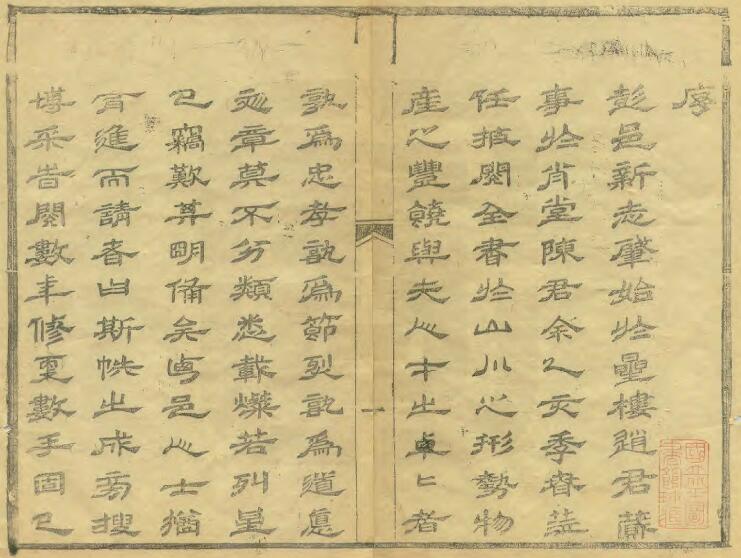 序
彭邑新志肇始於曐樓趙君蕆
事於肖堂陳君余乙亥季春蒞
任披閱全書於山川之形勢物
產之豐饒與夫人才之卓匕者
一
孰為忠孝孰為節烈孰為道悳
文章莫不分類悉載燦若列星
已竊歎其明備矣邑人士猶
有進而請者曰斯帙之成旁搜
博采旹閱數年修更數手固已
國立北平圖
書館